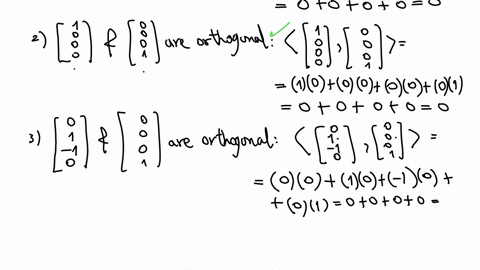 = 0 + 0 + 0 + 0 = 0
2) [1 0 0 0] & [0 0 0 1] are orthogonal: ✓ < [1 0 0 0] , [0 0 0 1] > =
= (1)(0) + (0)(0) + (0)(0) + (0)(1)
= 0 + 0 + 0 + 0 = 0
3) [0 1 -1 0] & [0 0 0 1] are orthogonal: < [0 1 -1 0] , [0 0 0 1] > =
= (0)(0) + (1)(0) + (-1)(0) +
+ (0)(1) = 0 + 0 + 0 + 0 =